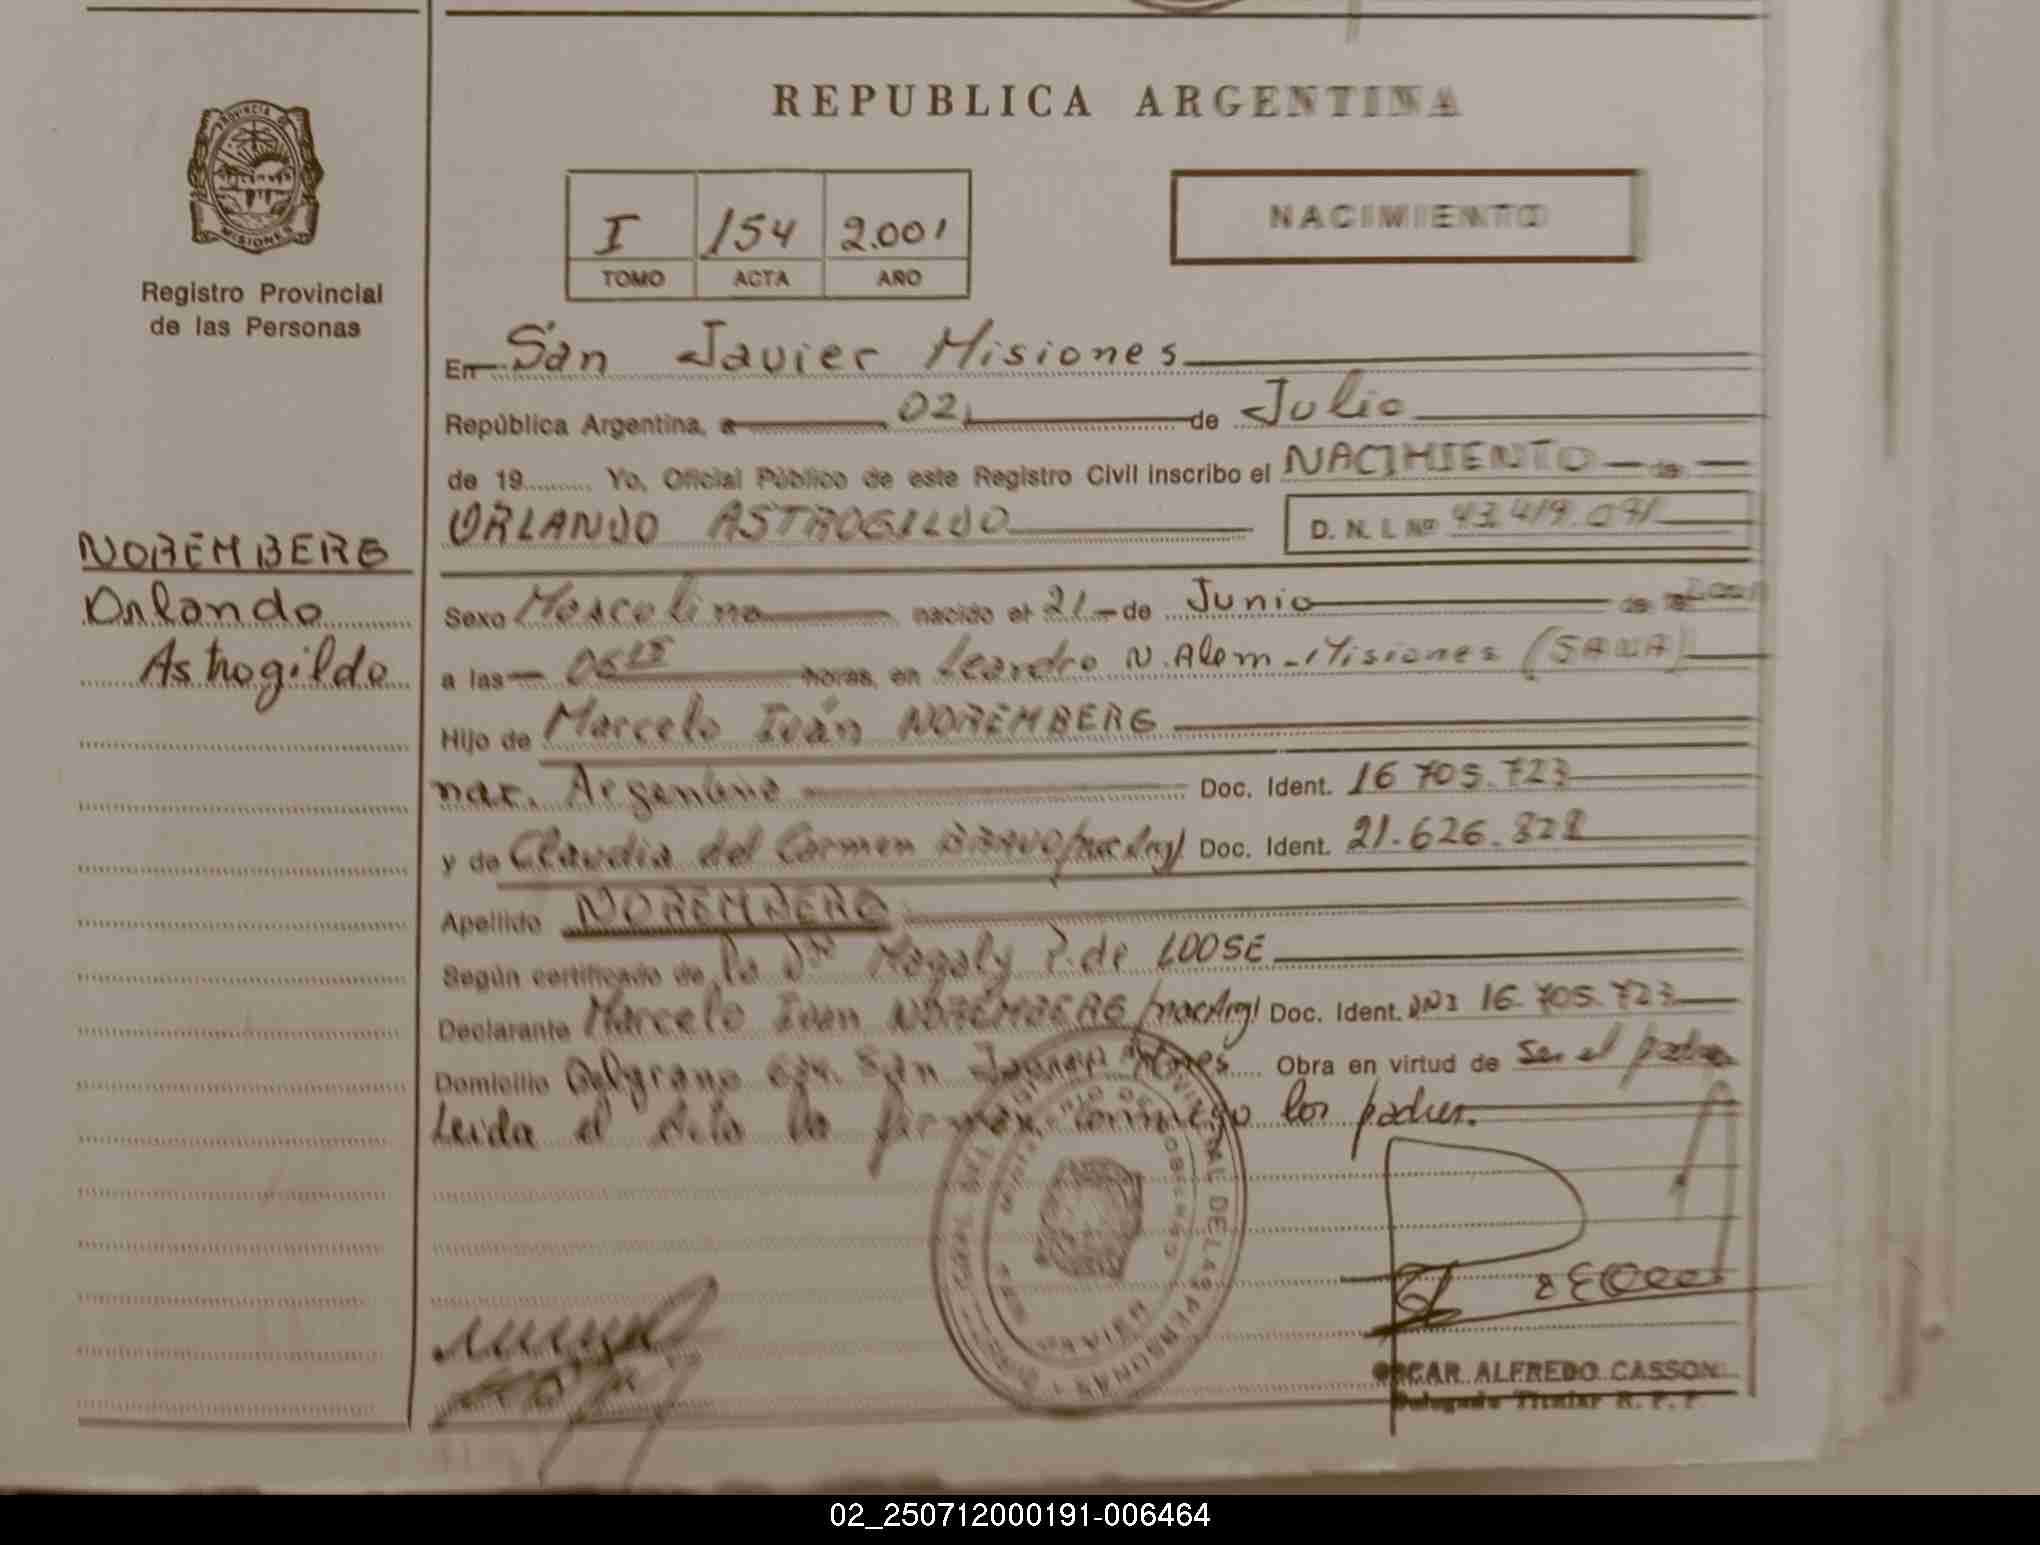 REPUBLICA ARGENTINA
PROVINCIA DE
MISIONES
Registro Provincial
de las Personas
I 154 2.001
TOMO ACTA AÑO
NACIMIENTO
En San Javier Misiones
República Argentina, a 02 de Julio
de 19.......... Yo, Oficial Público de este Registro Civil inscribo el NACIMIENTO de
ORLANDO ASTROGILDO D. N. I. Nº 43.419.071
NOREMBERG
Orlando
Astrogildo
Sexo Masculino nacido el 21 de Junio de 2001
a las 06 15 horas, en Leandro N. Alem - Misiones
Hijo de Marcelo Iván NOREMBERG
nac. Argentino Doc. Ident. 16 705.723
y de Claudia del Carmen BRAVO /nac Arg/ Doc. Ident. 21.626.828
Apellido NOREMBERG
Según certificado de la Dra Magaly P. de LOOSE
Declarante Marcelo Iván NOREMBERG /nac Arg/ Doc. Ident. DNI 16.705.723
Domicilio Belgrano San Javier Mnes Obra en virtud de ser el padre
Leida el Acta la firman conmigo los padres.
OSCAR ALFREDO CASSONI
Delegado Titular R. P. P.
02_250712000191-006464